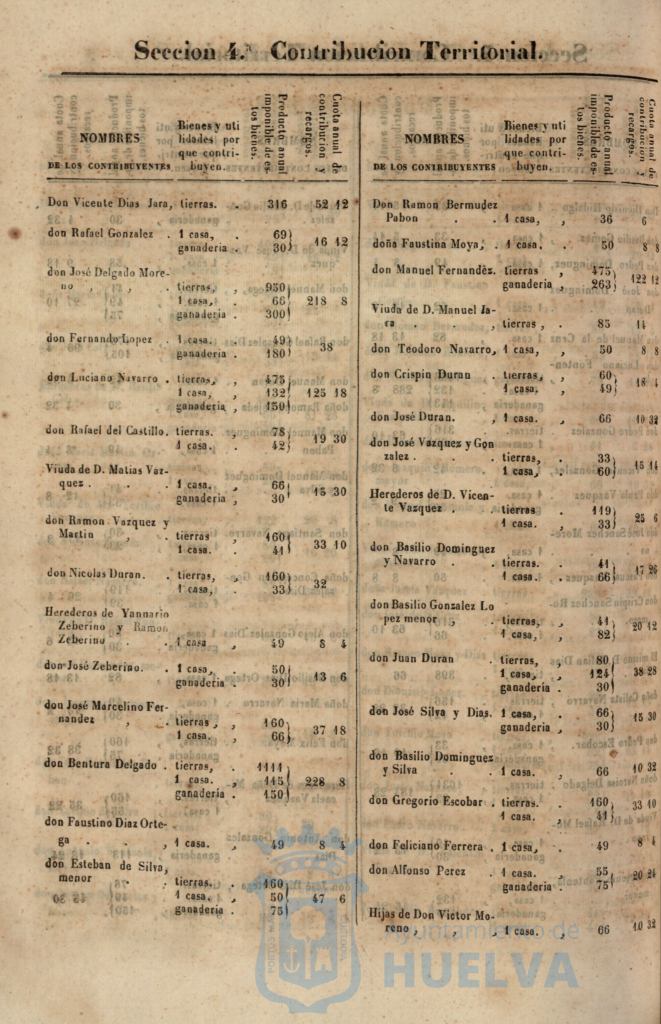 Seccion 4.ª Contribucion Territorial.
NOMBRES
DE LOS CONTRIBUYENTES
Bienes y uti
lidades por
que contri-
buyen.
Producto anual
imponible de es-
tos bienes.
Cuota anual de
contribucion y
recargos.
Don Vicente Dias Jara, tierras. . 316 52 12
don Rafael Gonzalez . 1 casa, . 69
ganaderia . 30 16 12
don José Delgado More-
no , , , tierras, , 950
1 casa, . 66 218 8
ganaderia . 300
don Fernando Lopez . 1 casa. . 49
ganaderia . 180 38
don Luciano Navarro . tierras, , 475
1 casa, , 132 125 18
ganaderia , 150
don Rafael del Castillo. tierras. , 78
1 casa. , 42 19 30
Viuda de D. Matias Vaz-
quez . . . 1 casa. , 66
ganaderia , 30 15 30
don Ramon Vazquez y
Martin , . tierras , 160
1 casa. . 41 33 10
don Nicolas Duran. . tierras, , 160
1 casa, , 33 32
Herederos de Yannario
Zeberino y Ramon
Zeberino . . 1 casa , 49 8 4
don José Zeberino. . 1 casa, . 50
ganaderia . 30 13 6
don José Marcelino Fer-
nandez , . tierras , , 160
1 casa. , 66 37 18
don Bentura Delgado . tierras, . 1111
1 casa. , 145 228 8
ganaderia . 150
don Faustino Diaz Orte-
ga . . , 1 casa. , 49 8 4
don Esteban de Silva,
menor . . tierras. . 160
1 casa. , 50 47 6
ganaderia . 75
NOMBRES
DE LOS CONTRIBUYENTES
Bienes y uti
lidades por
que contri-
buyen.
Producto anual
imponible de es-
tos bienes.
Cuota anual de
contribucion y
recargos.
Don Ramon Bermudez
Pabon . . 1 casa, , 36 6
doña Faustina Moya, . 1 casa. . 50 8 8
don Manuel Fernandez. tierras , 475
ganaderia , 263 122 12
Viuda de D. Manuel Ja-
ra . . , tierras , . 85 14
don Teodoro Navarro, 1 casa, , 50 8 8
don Crispin Duran . tierras, , 60
1 casa. , 49 18 4
don José Duran. , 1 casa. . 66 10 32
don José Vazquez y Gon
zalez . . . tierras, . 33
1 casa, . 60 15 14
Herederos de D. Vicen-
te Vazquez . . tierras . 119
1 casa. . 33 25 6
don Basilio Dominguez
y Navarro . . tierras. . 41
1 casa. . 66 17 26
don Basilio Gonzalez Lo
pez menor , . tierras, . 41
1 casa, , 82 20 12
don Juan Duran . tierras, , 80
1 casa, , 124 38 28
ganaderia . 30
don José Silva y Dias. 1 casa, , 66
ganaderia , 30 15 30
don Basilio Dominguez
y Silva . . 1 casa. , 66 10 32
don Gregorio Escobar . tierras. . 160
1 casa. . 41 33 10
don Feliciano Ferrera . 1 casa, , 49 8 4
don Alfonso Perez . 1 casa. . 55
ganaderia . 75 20 24
Hijas de Don Victor Mo-
reno , , , 1 casa. , 66 10 32
Ayuntamiento de
HUELVA